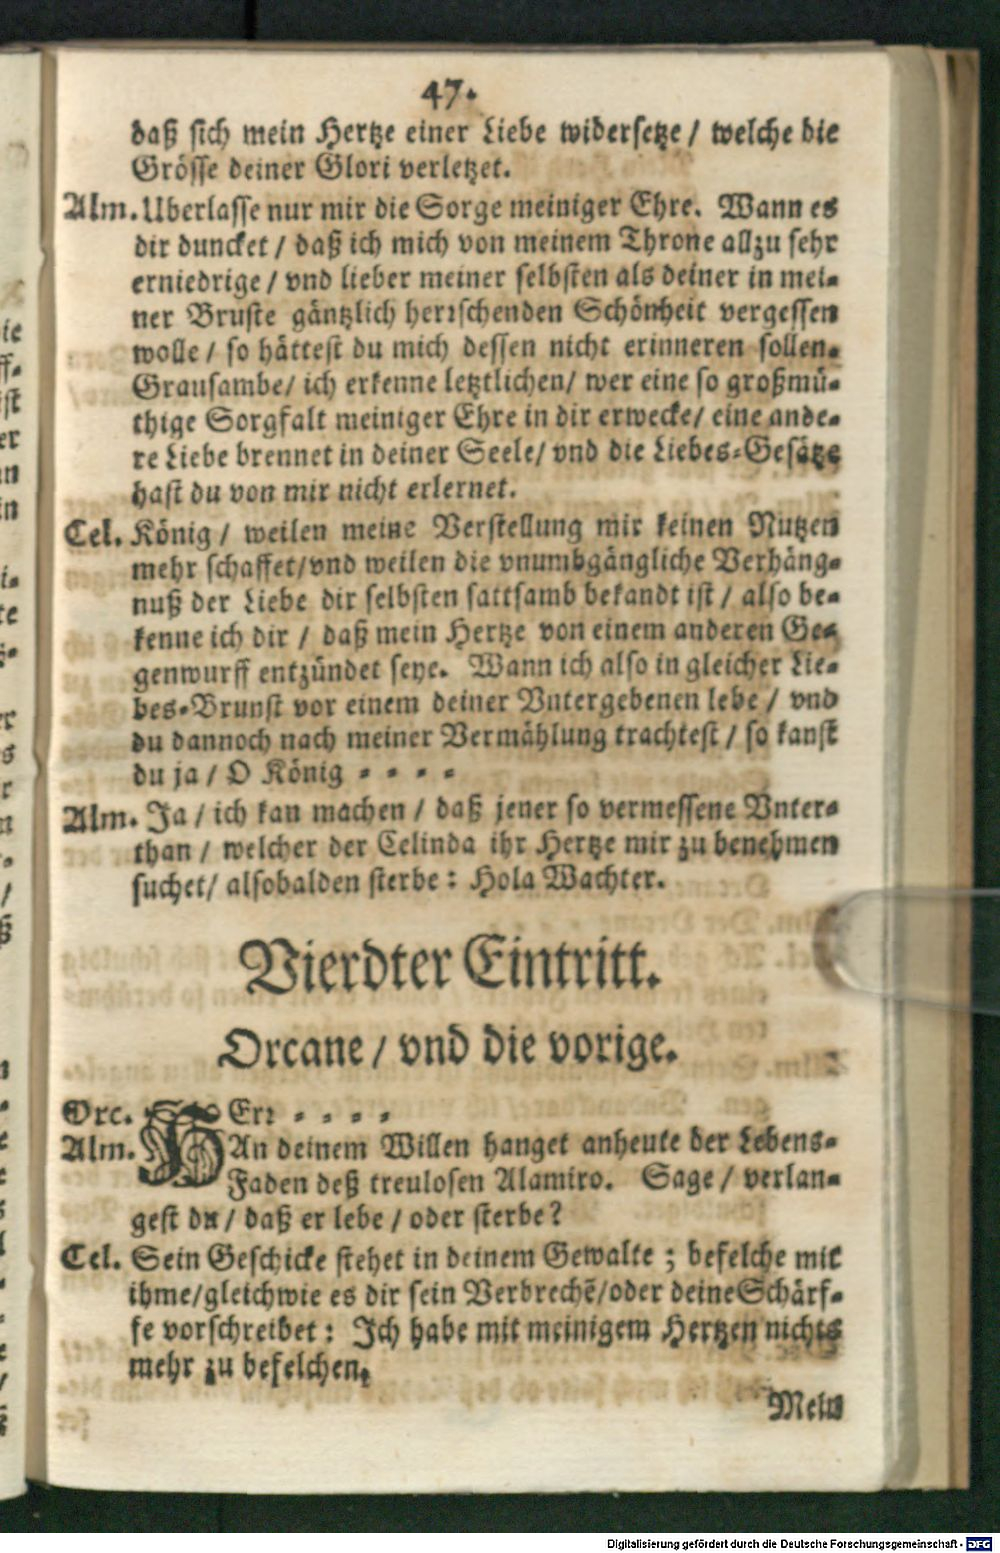 47.
daß sich mein Hertze einer Liebe widersetze / welche die
Grösse deiner Glori verletzet.
Alm. Uberlasse nur mir die Sorge meiniger Ehre. Wann es
dir duncket / daß ich mich von meinem Throne allzu sehr
erniedrige / vnd lieber meiner selbsten als deiner in mei-
ner Bruste gäntzlich herrschenden Schönheit vergessen
wolle / so hättest du mich dessen nicht erinneren sollen.
Grausambe / ich erkenne letztlichen / wer eine so großmü-
thige Sorgfalt meiniger Ehre in dir erwecke / eine ande-
re Liebe brennet in deiner Seele / vnd die Liebes-Gesätze
hast du von mir nicht erlernet.
Cel. König / weilen meine Verstellung mir keinen Nutzen
mehr schaffet / vnd weilen die vnumbgängliche Verhäng-
nuß der Liebe dir selbsten sattsamb bekandt ist / also be-
kenne ich dir / daß mein Hertze von einem anderen Ge-
genwurff entzündet seye. Wann ich also in gleicher Lie-
bes-Brunst vor einem deiner Vntergebenen lebe / vnd
du dannoch nach meiner Vermählung trachtest / so kanst
du ja / O König - - - -
Alm. Ja / ich kan machen / daß jener so vermessene Vnter-
than / welcher der Celinda ihr Hertze mir zu benehmen
suchet / alsobalden sterbe : Hola Wachter.
Vierdter Eintritt.
Orcane / vnd die vorige.
Orc. HErr - - - -
Alm. An deinem Willen hanget anheute der Lebens-
Faden deß treulosen Alamiro. Sage / verlan-
gest du / daß er lebe / oder sterbe?
Cel. Sein Geschicke stehet in deinem Gewalte ; befelche mit
ihme / gleichwie es dir sein Verbrechẽ / oder deine Schärf-
fe vorschreibet : Ich habe mit meinigem Hertzen nichts
mehr zu befelchen.
Digitalisierung gefördert durch die Deutsche Forschungsgemeinschaft - DFG